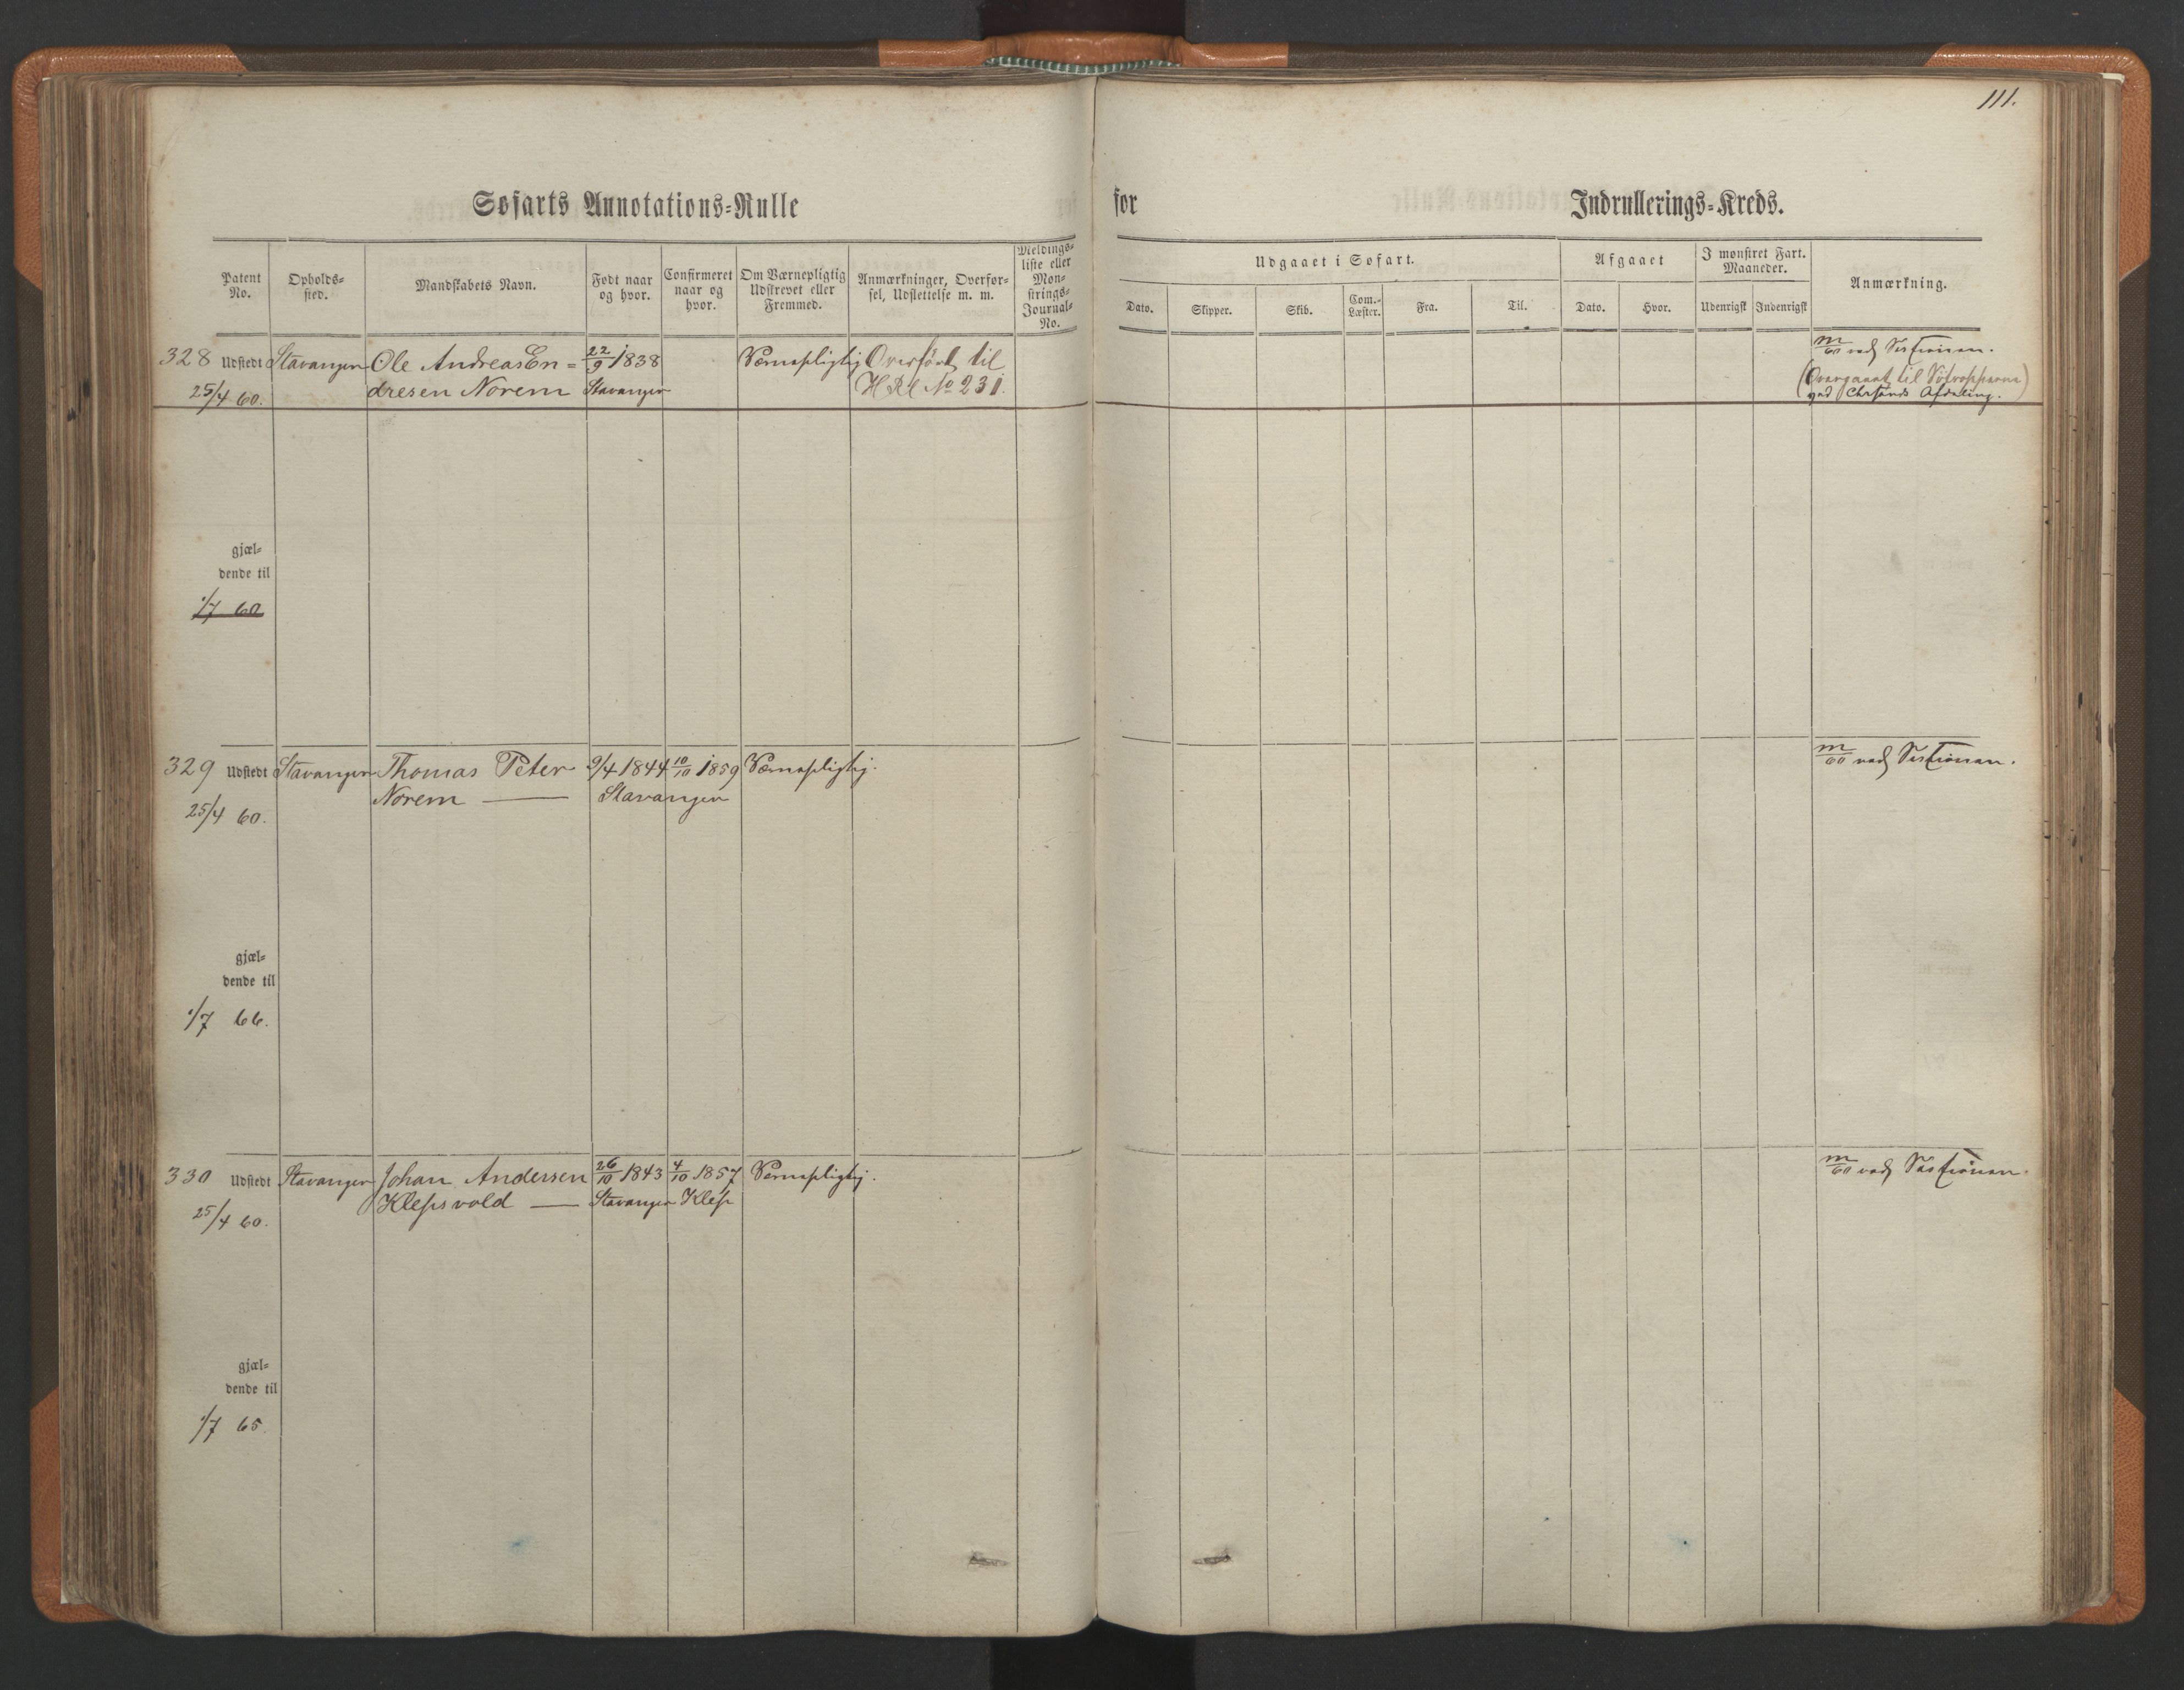 111.
Søfarts Annotations-Rulle
for
Indrullerings-Kreds.
Patent No.
Opholds-sted.
Mandskabets Navn.
Født naar og hvor.
Confirmeret naar og hvor.
Om Værnepligtig Udskrevet eller Fremmed.
Anmærkninger, Overførsel, Udslettelse m. m.
Meldings-liste eller Mønstrings-Journal-No.
Udgaaet i Søfart.
Afgaaet
I mønstret Fart. Maaneder.
Anmærkning.
Dato.
Skipper.
Skib.
Com.-Læster.
Fra.
Til.
Dato.
Hvor.
Udenrigsk
Indenrigsk
328 Udstedt Stavanger Ole Andreas En= 22/9 1838 Værnepligtig Overført til
25/4 60. dresen Norem Stavanger HRl No 231.
m/60 ved Sessionen.
(Overgaaet til Søtropperne
ved Chrsands Afdeling.)
gjæl-
dende til
1/7 60
329 Udstedt Stavanger Thomas Peter 9/4 1844 10/10 1859 Værnepligtig.
Norem — Stavanger
25/4 60.
m/60 ved Sessionen.
gjæl-
dende til
1/7 66.
330 Udstedt Stavanger Johan Andersen 26/10 1843 4/10 1857 Værnepligtig.
25/4 60. Klepsvold — Stavanger Klep
m/60 ved Sessionen.
gjæl-
dende til
1/7 65.